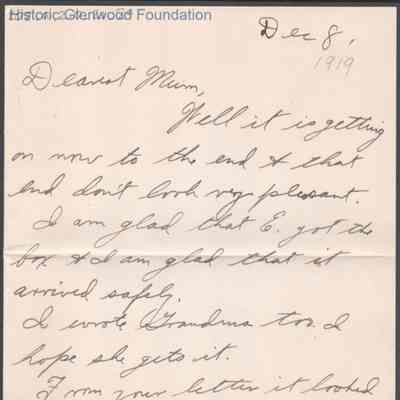 Historic Glenwood Foundation
Dec 8,
1919
Dearest Mum,
Well it is getting
on now to the end & that
end don't look very pleasant.
I am glad that E. got the
box & I am glad that it
arrived safely.
I wrote Grandma too. I
hope she gets it.
From your letter it looked